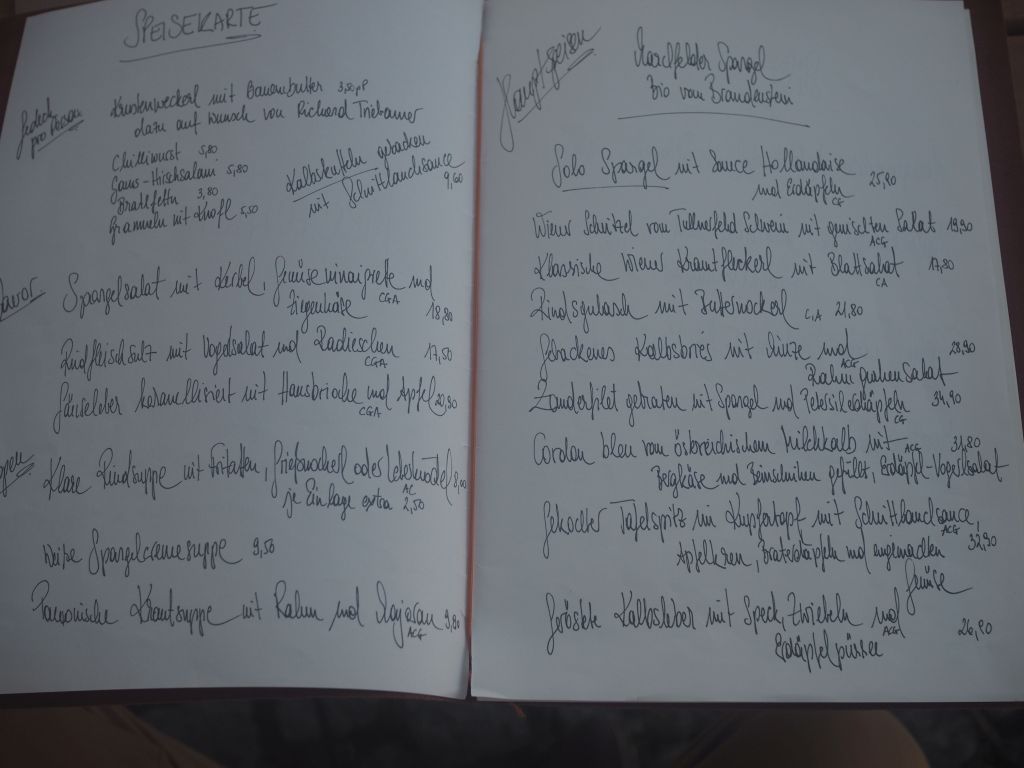 SPEISEKARTE
Gedeck
pro Person
Krustenweckerl mit Bauernbutter 3,50 pP
dazu auf Wunsch von Richard Triebaumer
Chilliwurst 5,80
Gams-Hirschsalami 5,80
Bratlfettn 3,80
Grammeln mit Knofl 5,50
Kalbskutteln gebacken
mit Schnittlauchsauce
9,60
Davor
Spargelsalat mit Kerbel, Gemüsevinaigrette und
Ziegenkäse CGA 18,80
Rindfleischsulz mit Vogerlsalat und Radieschen 17,50
CGA
Gänseleber karamellisiert mit Hausbrioche und Apfel 20,90
CGA
Suppen
Klare Rindsuppe mit Fritatten, Grießnockerl oder Leberknödel 8,00
AC
je Einlage extra 2,50
Weiße Spargelcremesuppe 9,50
Pannonische Krautsuppe mit Rahm und Majoran 9,80
ACG
Hauptspeisen
Marchfelder Spargel
Bio vom Brandenstein
Solo Spargel mit Sauce Hollandaise
und Erdäpfeln 25,90
CG
Wiener Schnitzel vom Tullnerfeld Schwein mit gemischten Salat 19,90
ACG
Klassische Wiener Krautfleckerl mit Blattsalat 17,80
CA
Rindsgulasch mit Butternockerl C,A 21,80
Gebackenes Kalbsbries mit Minze und 28,90
ACG
Rahmgurkensalat
Zanderfilet gebraten mit Spargel und Petersilerdäpfeln 34,90
CG
Cordon bleu vom österreichischem Milchkalb mit ACG 31,80
Bergkäse und Beinschinken gefüllt, Erdäpfel-Vogerlsalat
Gekochter Tafelspitz im Kupfertopf mit Schnittlauchsauce,
ACG
Apfelkren, Braterdäpfeln und eingemachten 32,90
Gemüse
Geröstete Kalbsleber mit Speck, Zwiebeln und
ACG 26,90
Erdäpfelpürree